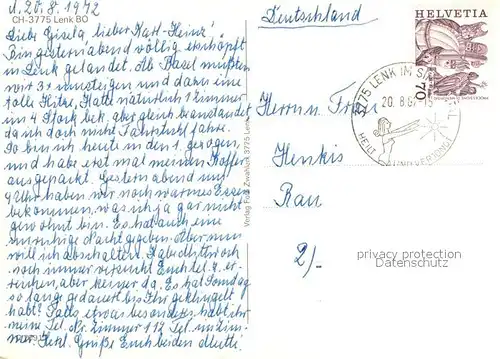 d. 20.8.1972
CH-3775 Lenk BO
Liebe Gisela, lieber Karl-Heinz!
Bin gestern abend völlig erschöpft
in Lenk gelandet. Ab Basel mußten
wir 3x umsteigen und dazu eine
tolle Hitze. Hatte natürlich 1 Zimmer
im 4 Stock bek. aber gleich beanstandet,
da ich doch nicht Fahrstuhl fahre.
So bin ich heute in den 1. gezogen,
und habe erst mal meinen Koffer
ausgepackt. Gestern abend um
9 Uhr haben wir noch warmes Essen
bekommen, was ich ja gar nicht
gewöhnt bin. Es hat auch eine
unruhige Nacht gegeben. Aber nun
will ich abschalten. Habe doch
noch immer versucht Euch tel. z. er-
reichen, aber keiner da. Es hat Sonntag
so lange gedauert bis Ihr geklingelt
habt? Falls etwas besonderes habt Ihr
meine Tel. Nr. Zimmer 112 Tel. im Zim-
mer. Herzl. Grüße Euch beiden Mutti
Verlag Foto Zwahlen 3775 Lenk
Deutschland
HELVETIA
70
3775 LENK IM SIMMENTAL
20. 8. 87 - 15
HEILT UND VERJÜNGT
Herrn u. Frau
Henkis
Rau
2/-
privacy protection
Datenschutz